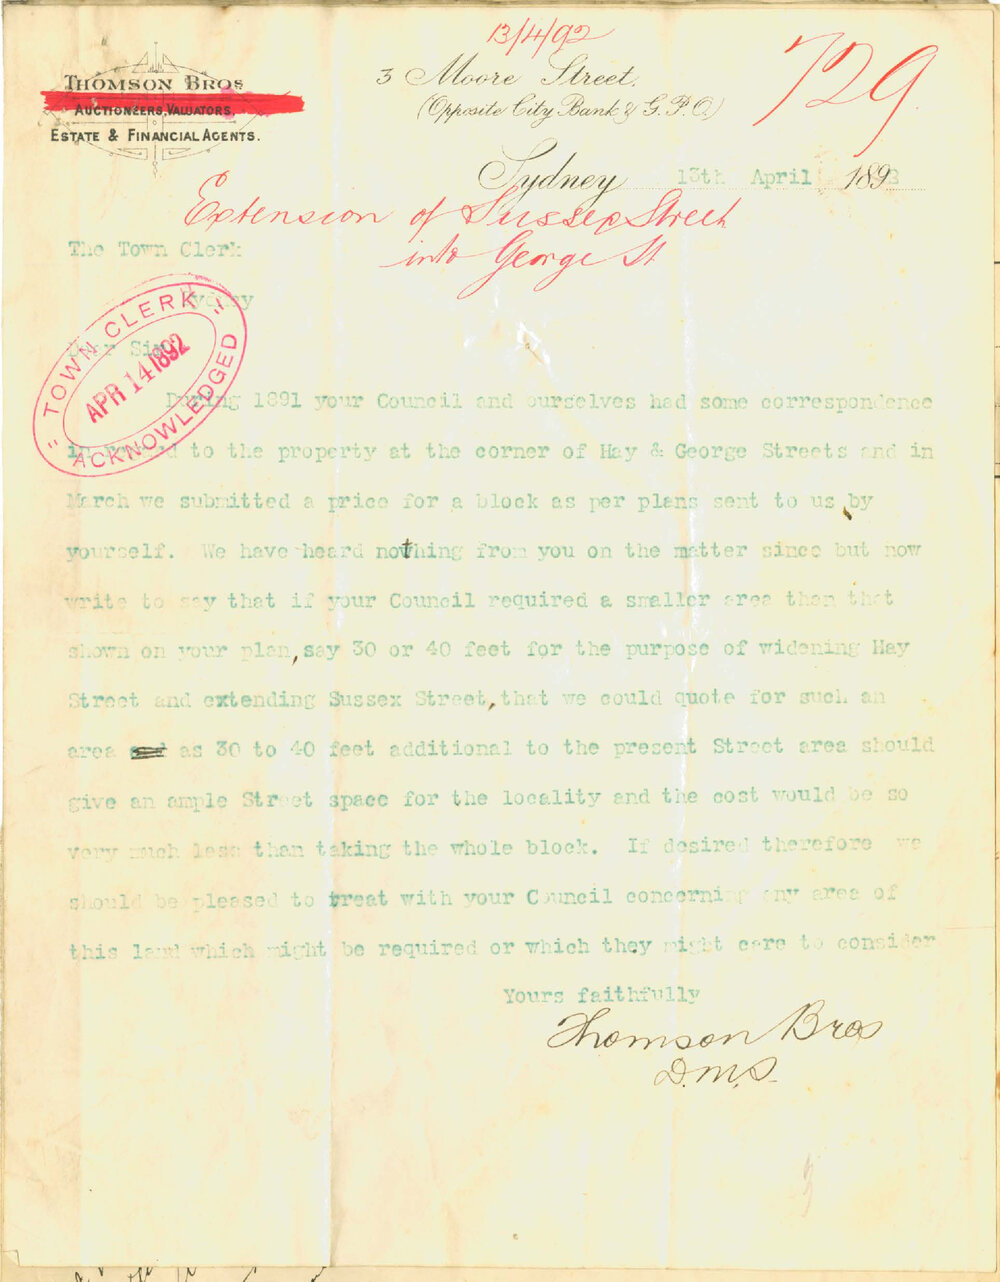 13/4/92
729
THOMSON BROS
AUCTIONEERS, VALUATORS,
ESTATE & FINANCIAL AGENTS.
3 Moore Street,
(Opposite City Bank & G.P.O.)
Sydney 13th April 1892
Extension of Sussex Street
into George St
The Town Clerk
Sydney
Dear Sir
TOWN CLERK
APR 14 1892
ACKNOWLEDGED
During 1891 your Council and ourselves had some correspondence
in regard to the property at the corner of Hay & George Streets and in
March we submitted a price for a block as per plans sent to us by
yourself. We have heard nothing from you on the matter since but now
write to say that if your Council required a smaller area than that
shown on your plan, say 30 or 40 feet for the purpose of widening Hay
Street and extending Sussex Street, that we could quote for such an
area as 30 to 40 feet additional to the present Street area should
give an ample Street space for the locality and the cost would be so
very much less than taking the whole block. If desired therefore we
should be pleased to treat with your Council concerning any area of
this land which might be required or which they might care to consider
Yours faithfully
Thomson Bros
D.M.S.